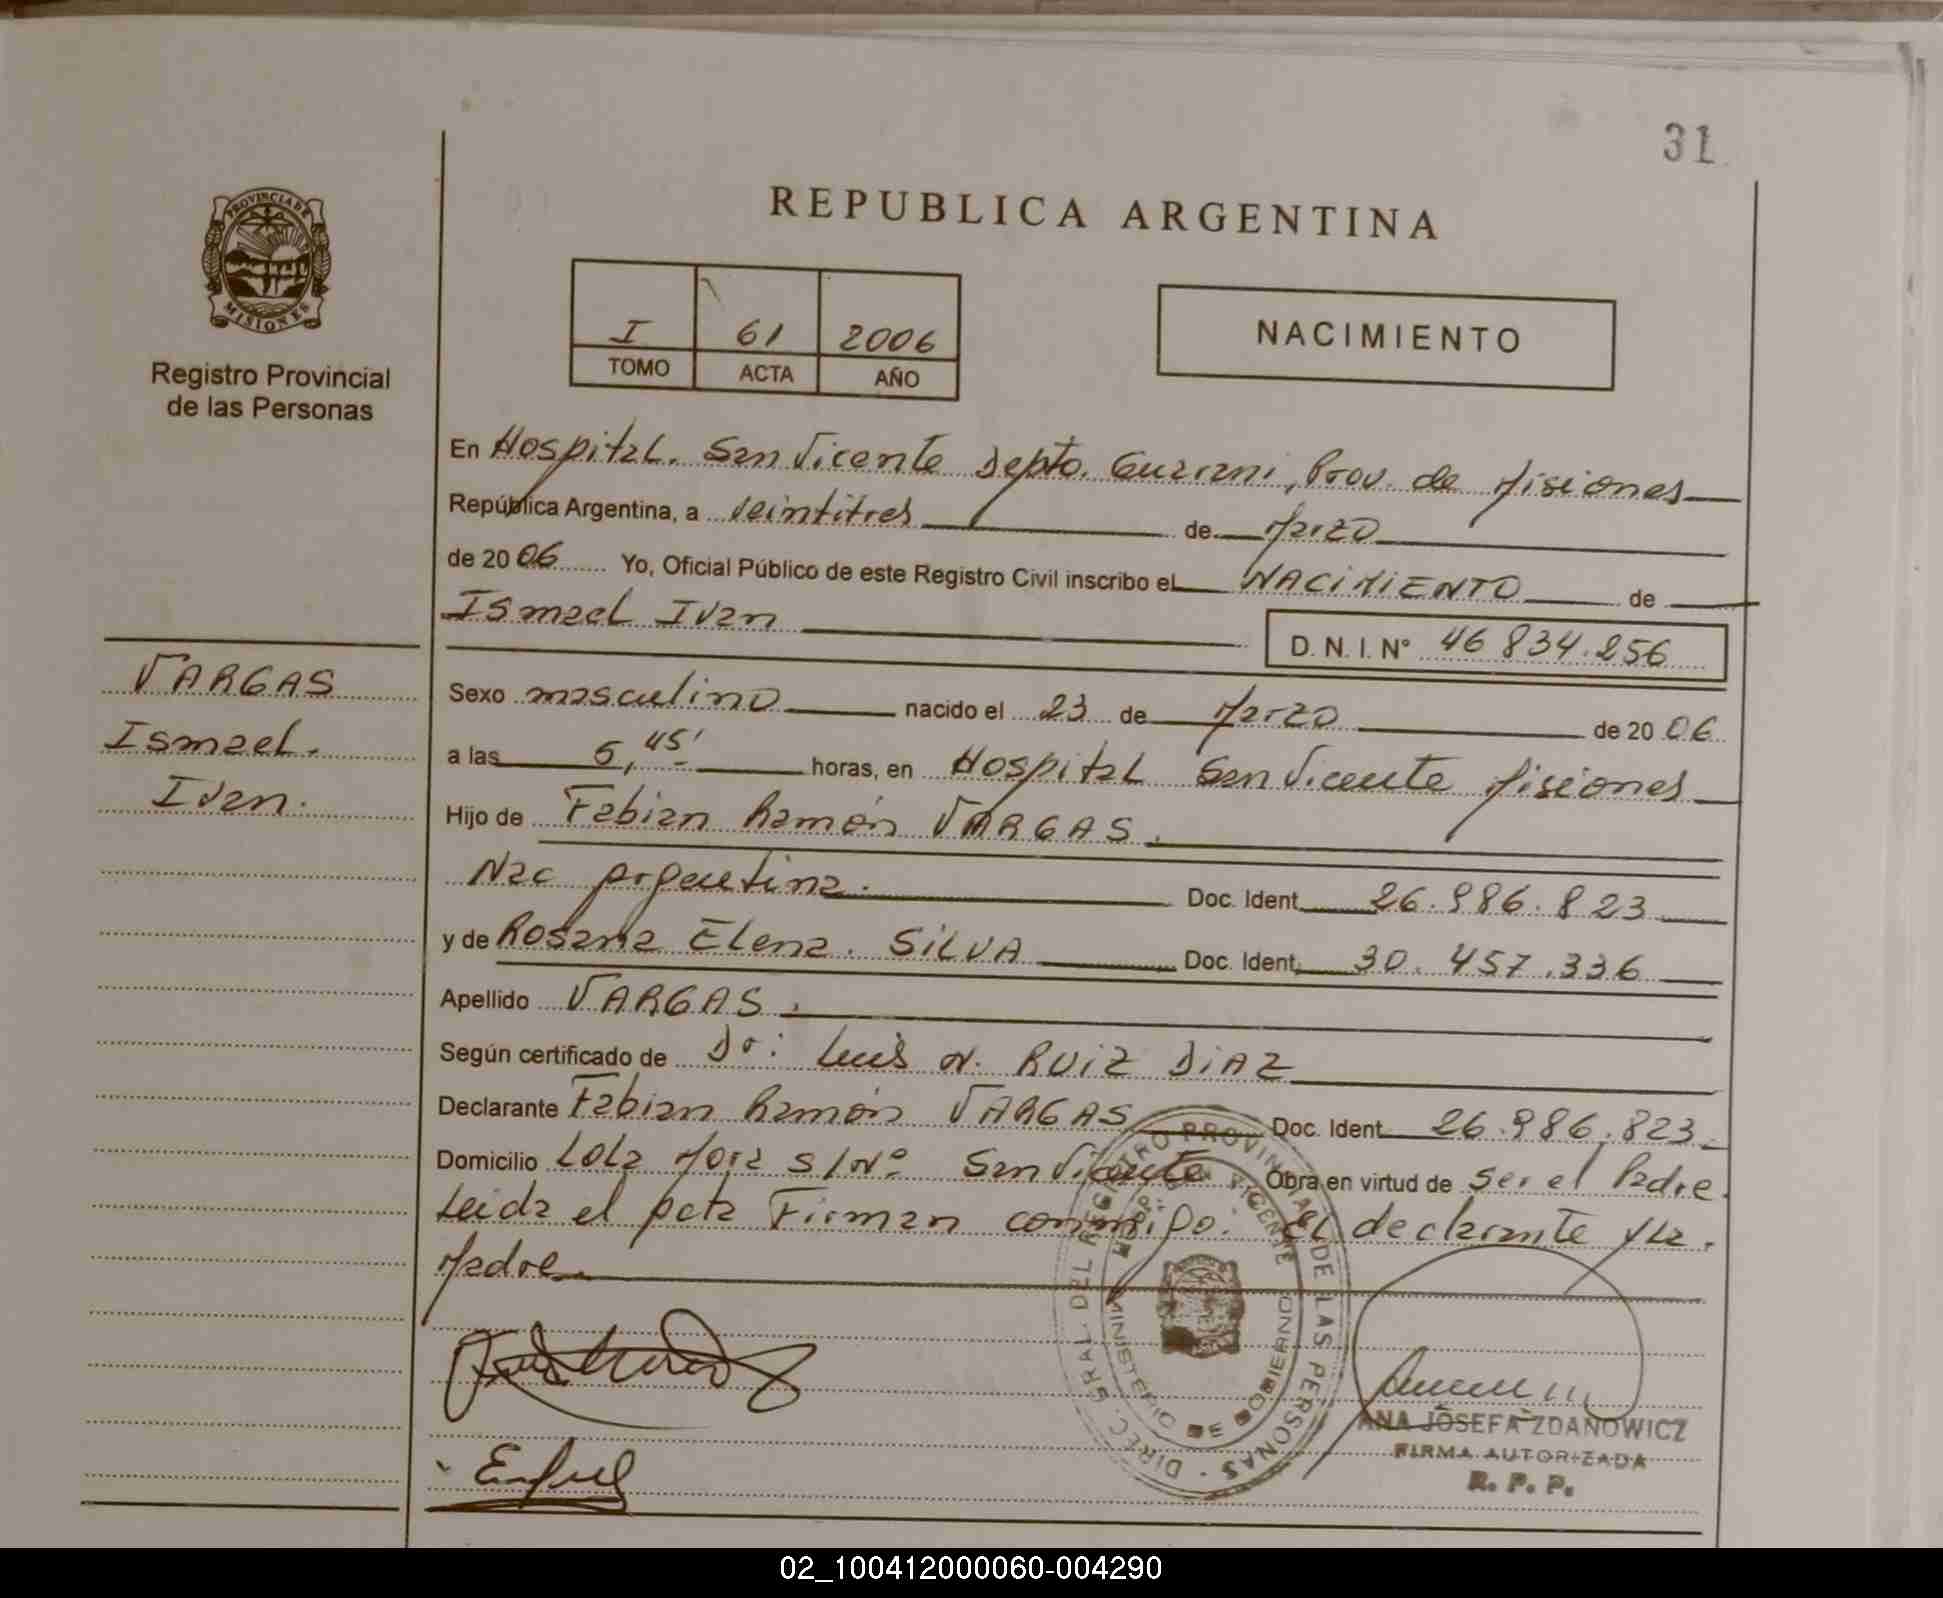 31
PROVINCIA DE
MISIONES
Registro Provincial
de las Personas
REPUBLICA ARGENTINA
I 61 2006
TOMO ACTA AÑO
NACIMIENTO
En Hospital. San Vicente Depto. Guarani, Prov. de Misiones
República Argentina, a veintitres de Marzo
de 2006 Yo, Oficial Público de este Registro Civil inscribo el NACIMIENTO de
Ismael Ivan
D. N. I. N° 46 834.256
VARGAS
Ismael.
Ivan.
Sexo masculino nacido el 23 de Marzo de 2006
a las 6,45' horas, en Hospital San Vicente Misiones
Hijo de Fabian Ramón VARGAS.
Nac Argentina. Doc. Ident. 26.986.823
y de Rosana Elena. SILVA Doc. Ident. 30.457.336
Apellido VARGAS.
Según certificado de Dr: Luis N. RUIZ DIAZ
Declarante Fabian Ramón VARGAS Doc. Ident. 26.986.823
Domicilio Lola Mora S/N° San Vicente Obra en virtud de ser el Padre.
Leida el acta Firman conmigo. El declarante y la.
Madre.
DIREC. GRAL. DEL REGISTRO PROVINCIAL DE LAS PERSONAS
MINISTERIO DE GOBIERNO
ANA JOSEFA ZDANOWICZ
FIRMA AUTORIZADA
R. P. P.
02_100412000060-004290